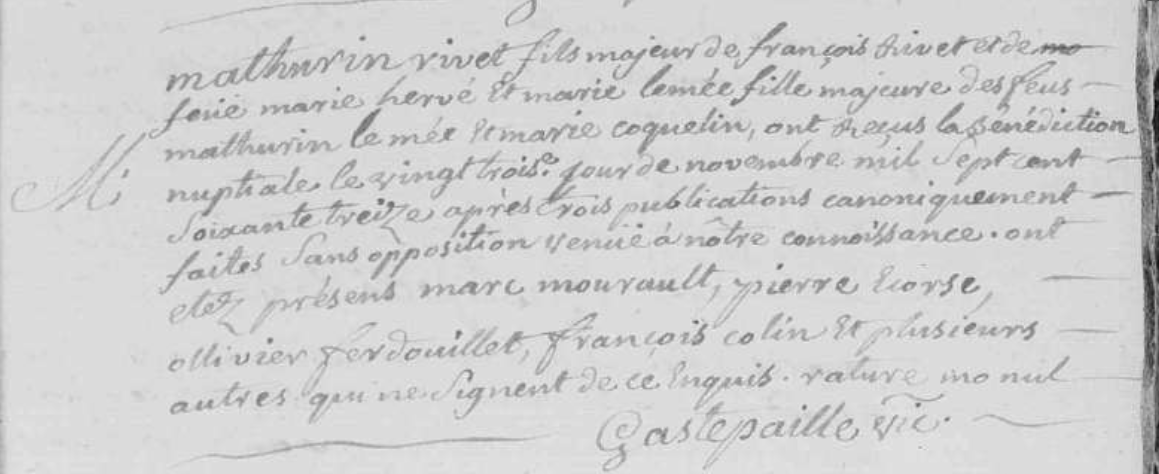 mathurin rivet fils majeur de françois Rivet et de mo
feüe marie hervé Et marie lemée fille majeure des feus
mathurin le mée Et marie coquelin, ont Reçus la Bénédiction
M. nuptiale le vingt trois.e jour de novembre mil Sept cent
Soixante treize après trois publications canoniquement
faites Sans opposition venüe à nôtre connoissance. ont
etez présens marc mourault, pierre Ecorse,
ollivier ferdouillet, françois colin Et plusieurs
autres qui ne Signent de ce Enquis. rature mo nul
Gastepaille vic.